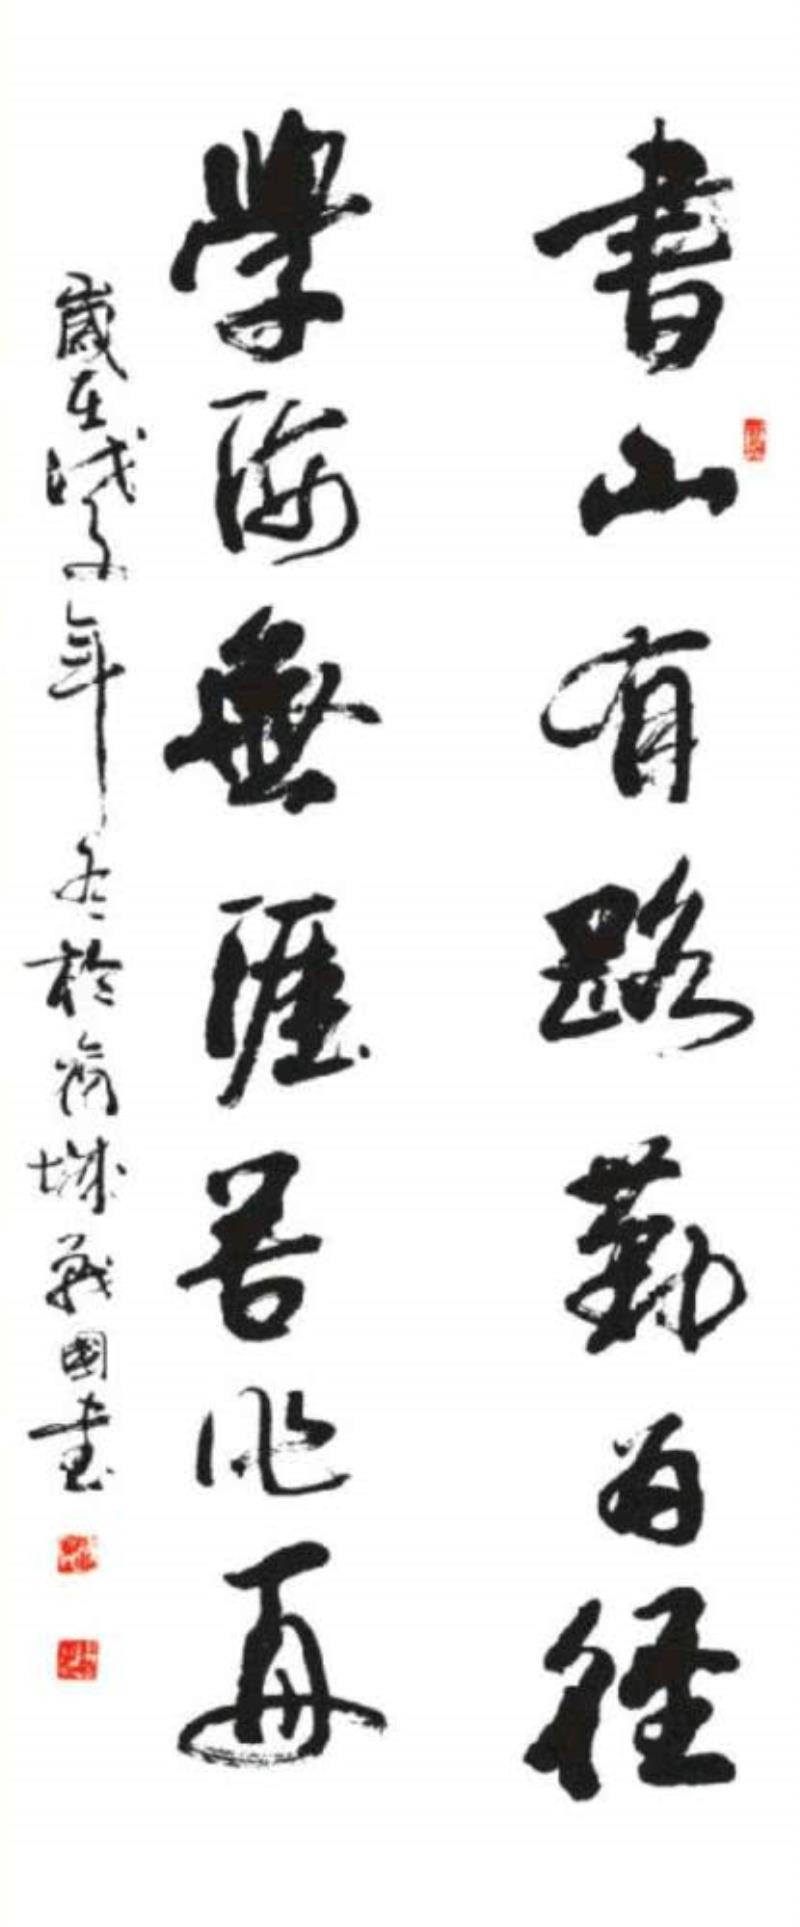 書山有路勤为徑
學海無涯苦作舟
歲在戊子年冬於城戰國書